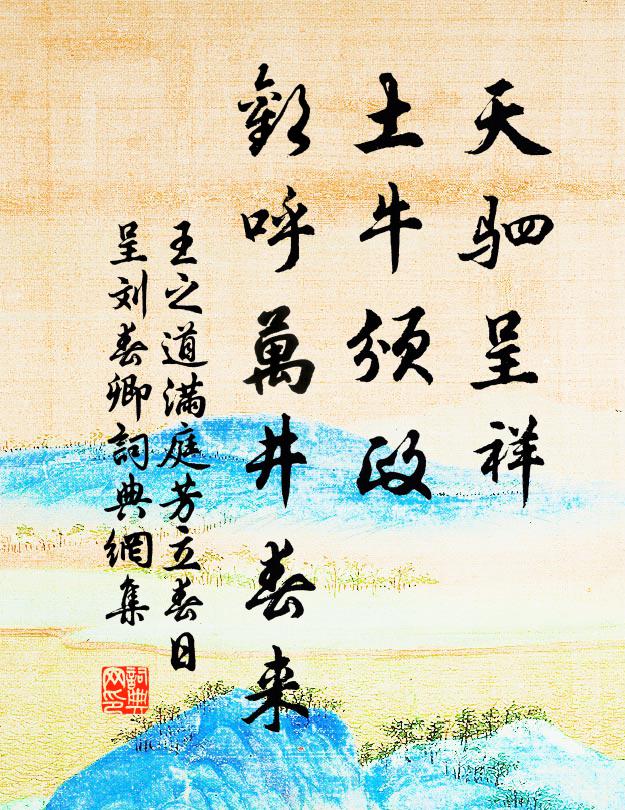 天驷呈祥
土牛颁政
歡呼萬井春来
王之道满庭芳立春日
呈刘春卿詞典網集
詞典网印